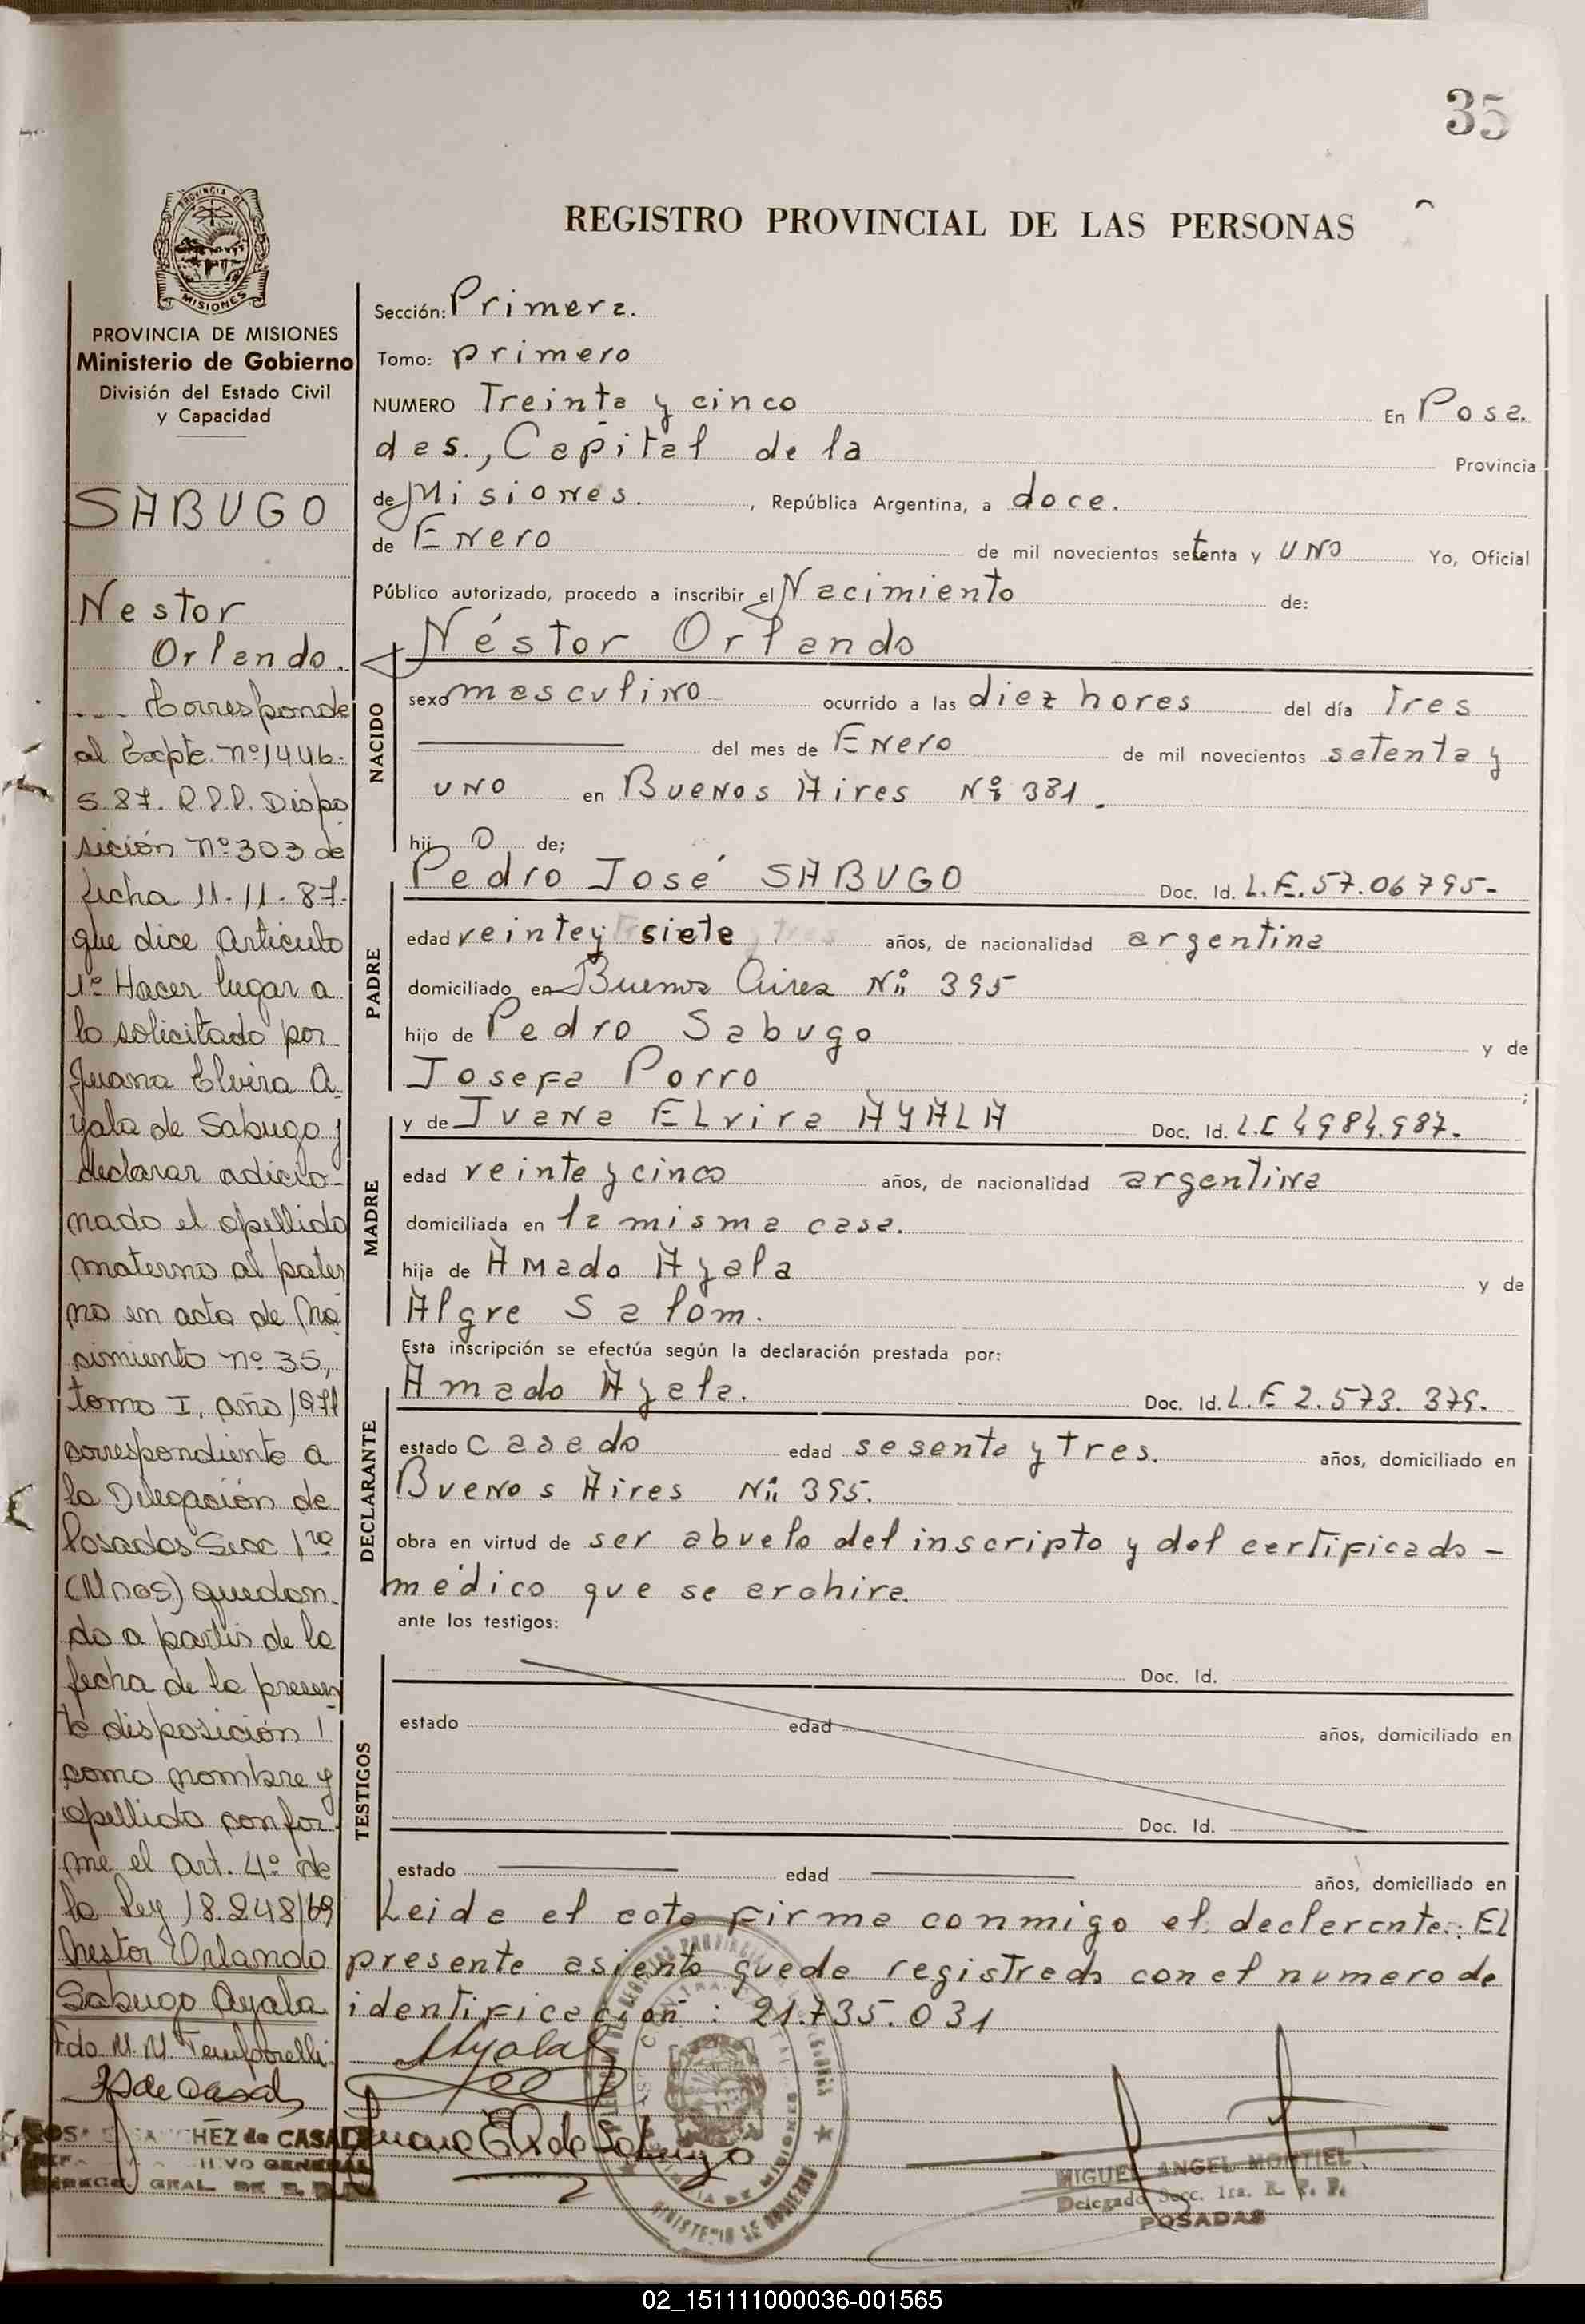 35
REGISTRO PROVINCIAL DE LAS PERSONAS
PROVINCIA DE MISIONES
Ministerio de Gobierno
División del Estado Civil
y Capacidad
SABUGO
Nestor
Orlando.
Corresponde
al Expte. nº 1446-
S.87. R.P.P. Dispo
sición nº 303 de
fecha 11-11-87-
que dice Articulo
1º Hacer lugar a
lo solicitado por
Juana Elvira A
yala de Sabugo y
declarar adicio-
nado el apellido
materno al pater
no en acta de Na
cimiento nº 35,
tomo I, año 1971
correspondiente a
la Delegación de
Posadas Secc 1ra
(Mnes) quedan-
do a partir de la
fecha de la presen
te disposición
como nombre y
apellido confor
me el art. 4º de
la Ley 18.248/69
Nestor Orlando
Sabugo Ayala
Fdo. M. M. Temporelli
CHEZ de CASAL
Sección: Primera.
Tomo: primero
NUMERO Treinta y cinco En Posa.
das., Capital de la Provincia
de Misiones. , República Argentina, a doce.
de Enero de mil novecientos setenta y uno Yo, Oficial
Público autorizado, procedo a inscribir el Nacimiento de:
Néstor Orlando
NACIDO
sexo masculino ocurrido a las diez horas del día Tres
del mes de Enero de mil novecientos setenta y
uno en Buenos Aires Nº 381.
hij o de;
Pedro José SABUGO Doc. Id. L.E. 57.06795-
PADRE
edad veinte y siete años, de nacionalidad argentina
domiciliado en Buenos Aires Nº 395
hijo de Pedro Sabugo y de
Josefa Porro ;
y de Juana Elvira AYALA Doc. Id. L.C 4984.987.
MADRE
edad veinte y cinco años, de nacionalidad argentina
domiciliada en la misma casa.
hija de Amado Ayala y de
Algre Salom.
Esta inscripción se efectúa según la declaración prestada por:
Amado Ayala. Doc. Id. L.E 2.573.379.
DECLARANTE
estado casado edad sesenta y tres. años, domiciliado en
Buenos Aires Nº 395.
obra en virtud de ser abuelo del inscripto y del certificado -
médico que se archiva.
ante los testigos:
TESTIGOS
Doc. Id.
estado edad años, domiciliado en
Doc. Id.
estado edad años, domiciliado en
Leida el acta firma conmigo el declarante.: El
presente asiento queda registrado con el numero de
identificación : 21.735.031
AAyala
Juana E. A. de Sabugo
MIGUEL ANGEL MONTIEL
Delegado Secc. 1ra. R. P. P.
POSADAS
02_151111000036-001565